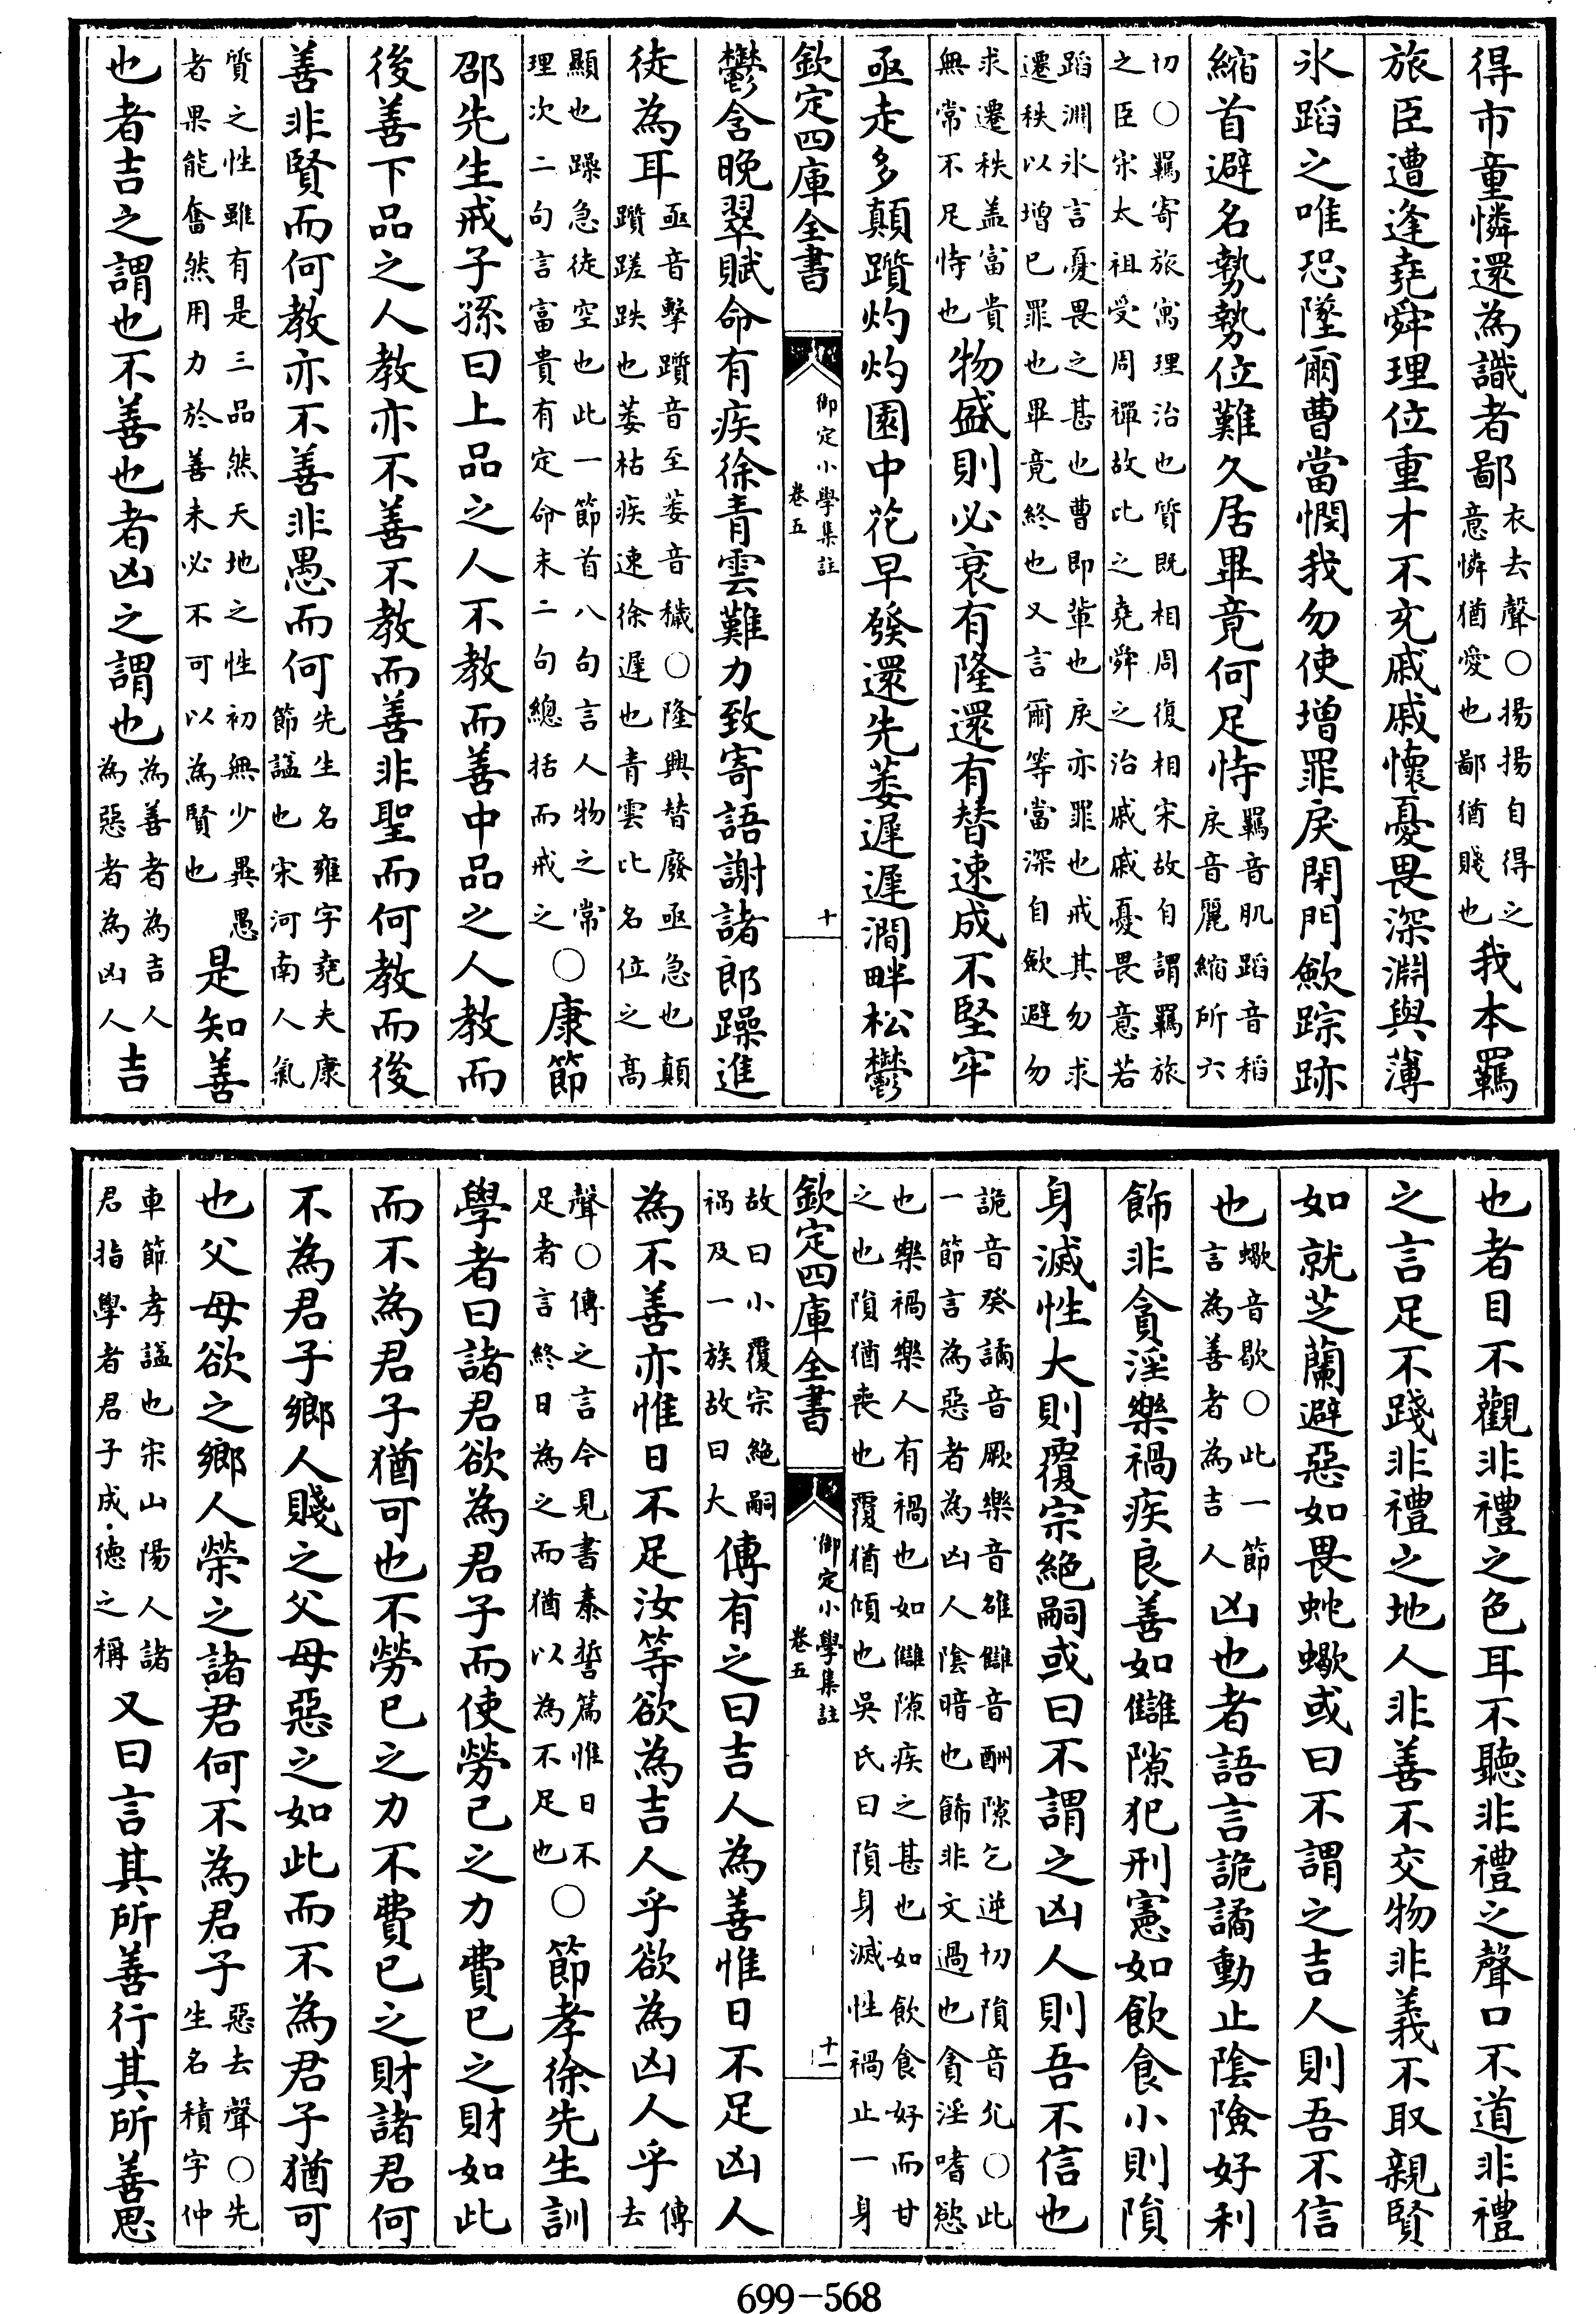 得市童憐還為識者鄙衣去聲○揚揚自得之意憐猶愛也鄙猶賤也我本羈
旅臣遭逢堯舜理位重才不充戚戚懷憂畏深淵與薄
氷蹈之唯恐墜爾曹當憫我勿使增罪戾閉門歛踪跡
縮首避名勢勢位難久居畢竟何足恃羈音肌蹈音稻戾音麗縮所六
切○羈寄旅寓理治也質既相周復相宋故自謂羈旅之臣宋太祖受周禪故比之堯舜之治戚戚憂畏意若
蹈淵氷言憂畏之甚也曹即軰也戾亦罪也戒其勿求遷秩以增已罪也畢竟終也又言爾等當深自歛避勿
求遷秩盖富貴無常不足恃也物盛則必衰有隆還有替速成不堅牢
亟走多顛躓灼灼園中花早發還先萎遲遲澗畔松鬱
欽定四庫全書
御定小學集註
卷五
十
鬱含晚翠賦命有疾徐青雲難力致寄語謝諸郎躁進
徒為耳亟音擊躓音至萎音穢○隆興替廢亟急也顛躓蹉跌也萎枯疾速徐遲也青雲比名位之高
顯也躁急徒空也此一節首八句言人物之常理次二句言富貴有定命末二句總括而戒之○康節
邵先生戒子孫曰上品之人不教而善中品之人教而
後善下品之人教亦不善不教而善非聖而何教而後
善非賢而何教亦不善非愚而何先生名雍字堯夫康節諡也宋河南人氣
質之性雖有是三品然天地之性初無少異愚者果能奮然用力於善未必不可以為賢也是知善
也者吉之謂也不善也者凶之謂也為善者為吉人為惡者為凶人吉
也者目不觀非禮之色耳不聽非禮之聲口不道非禮
之言足不踐非禮之地人非善不交物非義不取親賢
如就芝蘭避惡如畏蛇蠍或曰不謂之吉人則吾不信
也蠍音歇○此一節言為善者為吉人凶也者語言詭譎動止陰險好利
飾非貪淫樂禍疾良善如讎隙犯刑憲如飲食小則隕
身滅性大則覆宗絶嗣或曰不謂之凶人則吾不信也
詭音癸譎音厥樂音雒讎音酬隙乞逆切隕音允○此一節言為惡者為凶人陰暗也飾非文過也貪淫嗜慾
也樂禍樂人有禍也如讎隙疾之甚也如飲食好而甘之也隕猶喪也覆猶傾也吳氏曰隕身滅性禍止一身
欽定四庫全書
御定小學集註
卷五
十一
故曰小覆宗絶嗣禍及一族故曰大傳有之曰吉人為善惟日不足凶人
為不善亦惟日不足汝等欲為吉人乎欲為凶人乎傳去
聲○傳之言今見書泰誓篇惟日不足者言終日為之而猶以為不足也○節孝徐先生訓
學者曰諸君欲為君子而使勞己之力費已之財如此
而不為君子猶可也不勞已之力不費已之財諸君何
不為君子鄉人賤之父母惡之如此而不為君子猶可
也父母欲之鄉人榮之諸君何不為君子惡去聲○先生名積字仲
車節孝諡也宋山陽人諸君指學者君子成德之稱又曰言其所善行其所善思
699-568